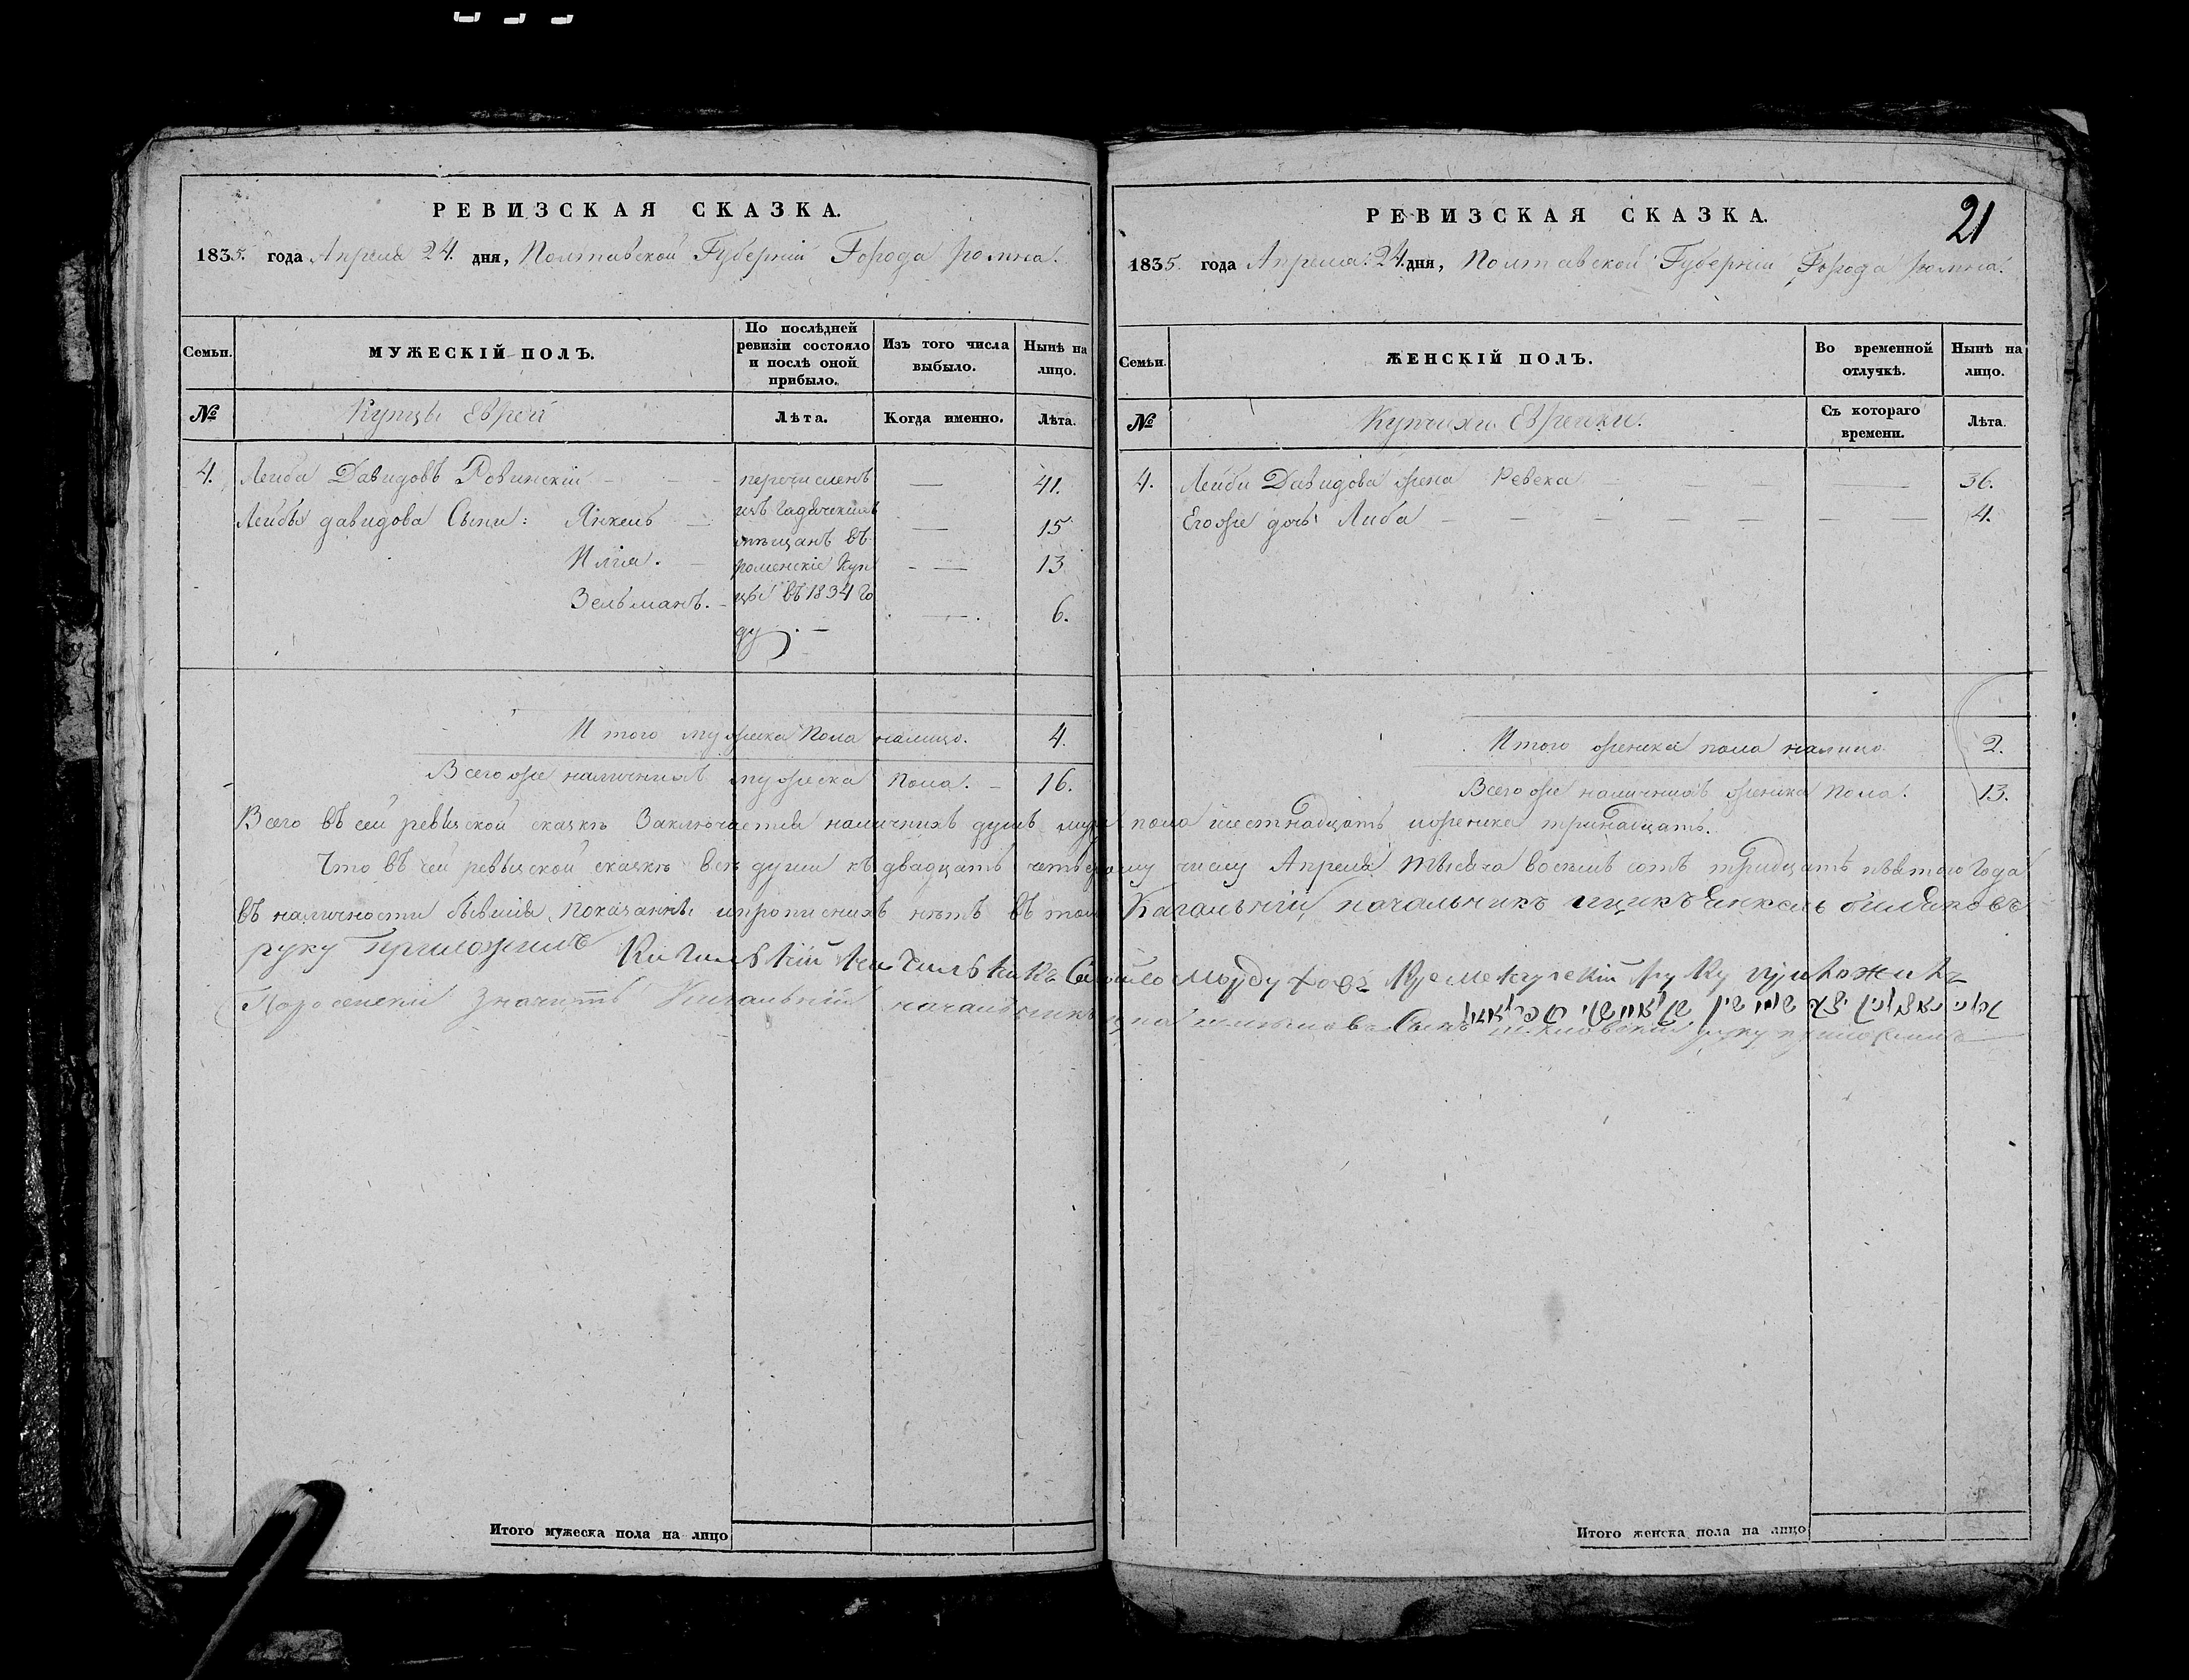 РЕВИЗСКАЯ СКАЗКА.
1835. года Апреля 24. дня, Полтавской Губерніи Города ромна.
Семьи.
МУЖЕСКІЙ ПОЛЪ.
По послѣдней ревизіи состояло и послѣ оной прибыло.
Изъ того числа выбыло.
Нынѣ на лицо.
№
Купцы Евреи
Лѣта.
Когда именно.
Лѣта.
4. Лейба Давидовъ Ровинскій 41.
Лейбы давидова Сыни: Янкель 15
Илія. 13
Зельманъ. 6.
перечисленъ
изъ Гадячскихъ
мещанъ въ
роменскіе Куп
цы въ 1834 го
ду.
Итого мужеска Пола налицо. 4.
Всего же наличнихъ мужеска Пола. 16.
РЕВИЗСКАЯ СКАЗКА.
21
1835 года Апреля. 24. дня, Полтавской Губерніи Города ромна.
Семьи.
ЖЕНСКІЙ ПОЛЪ.
Во временной отлучкѣ.
Нынѣ на лицо.
№
Купчихи Еврейки.
Съ котораго времени.
Лѣта.
4. Лейби Давидова жена Ревека 36.
Егоже дочь Либа 4.
Итого женска пола налицо 2.
Всего же наличнихъ женска Пола. 13.
Всего въ сей ревизской сказкѣ Заключается наличнихъ душъ муж пола шестнадцать иженска тринадцать.
Что въ сей ревизской сказкѣ все души къ двадцать четвертому числу Апреля тысяча восемь сотъ тридцать пятого Года
въ наличности бывшія, показанны ипрописнихъ нѣтъ въ том Кагальній начальникъ ицикъ Енкель
руку Приложилъ Кагальній начальникъ Кременчугскій руку приложилъ
значитъ Кагальній начальникъ руку приложилъ
Итого мужеска пола на лицо
Итого женска пола на лицо